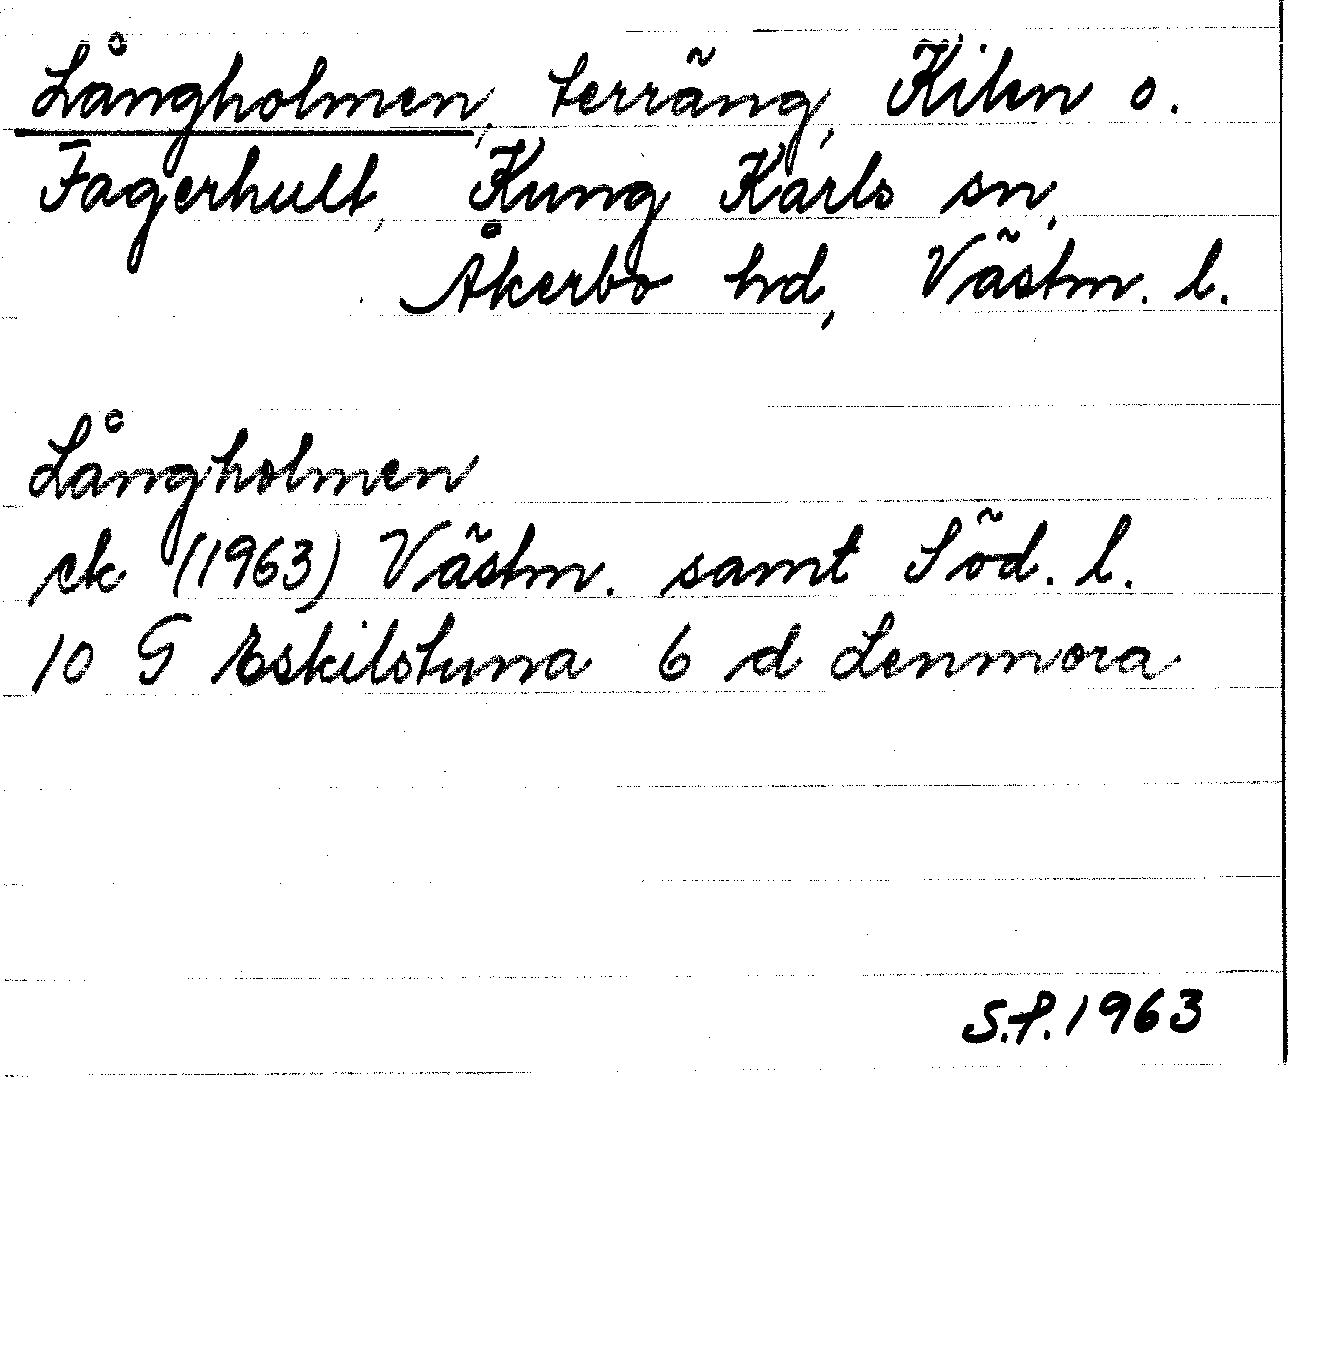 Långholmen, terräng, Kilen o.
Fagerhult, Kung Karls sn,
Åkerbo hd, Västm. l.
Långholmen
ek (1963) Västm. samt Söd. l.
10 G Eskilstuna 6 d Lenmora
S.P. 1963